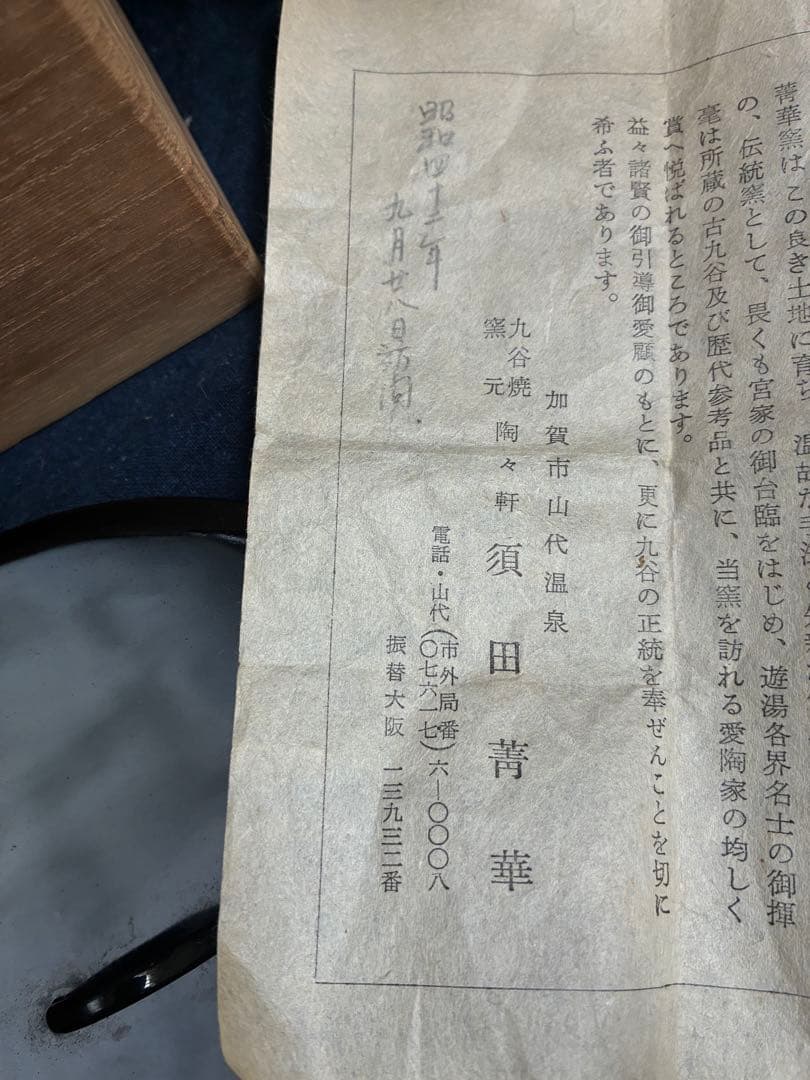 菁華窯は この良き土地に育ち 温故
の、伝統窯として、畏くも宮家の御台臨をはじめ、遊湯各界名士の御揮
毫は所蔵の古九谷及び歴代参考品と共に、当窯を訪れる愛陶家の均しく
賞へ悦ばれるところであります。
益々諸賢の御引導御愛顧のもとに、更に九谷の正統を奉ぜんことを切に
希ふ者であります。
加賀市山代温泉
九谷焼窯元 陶々軒 須田菁華
電話・山代(市外局番〇七六一七)六―〇〇〇八
振替大阪 一二三九三二番
昭和四十二年
九月廿八日訪問.